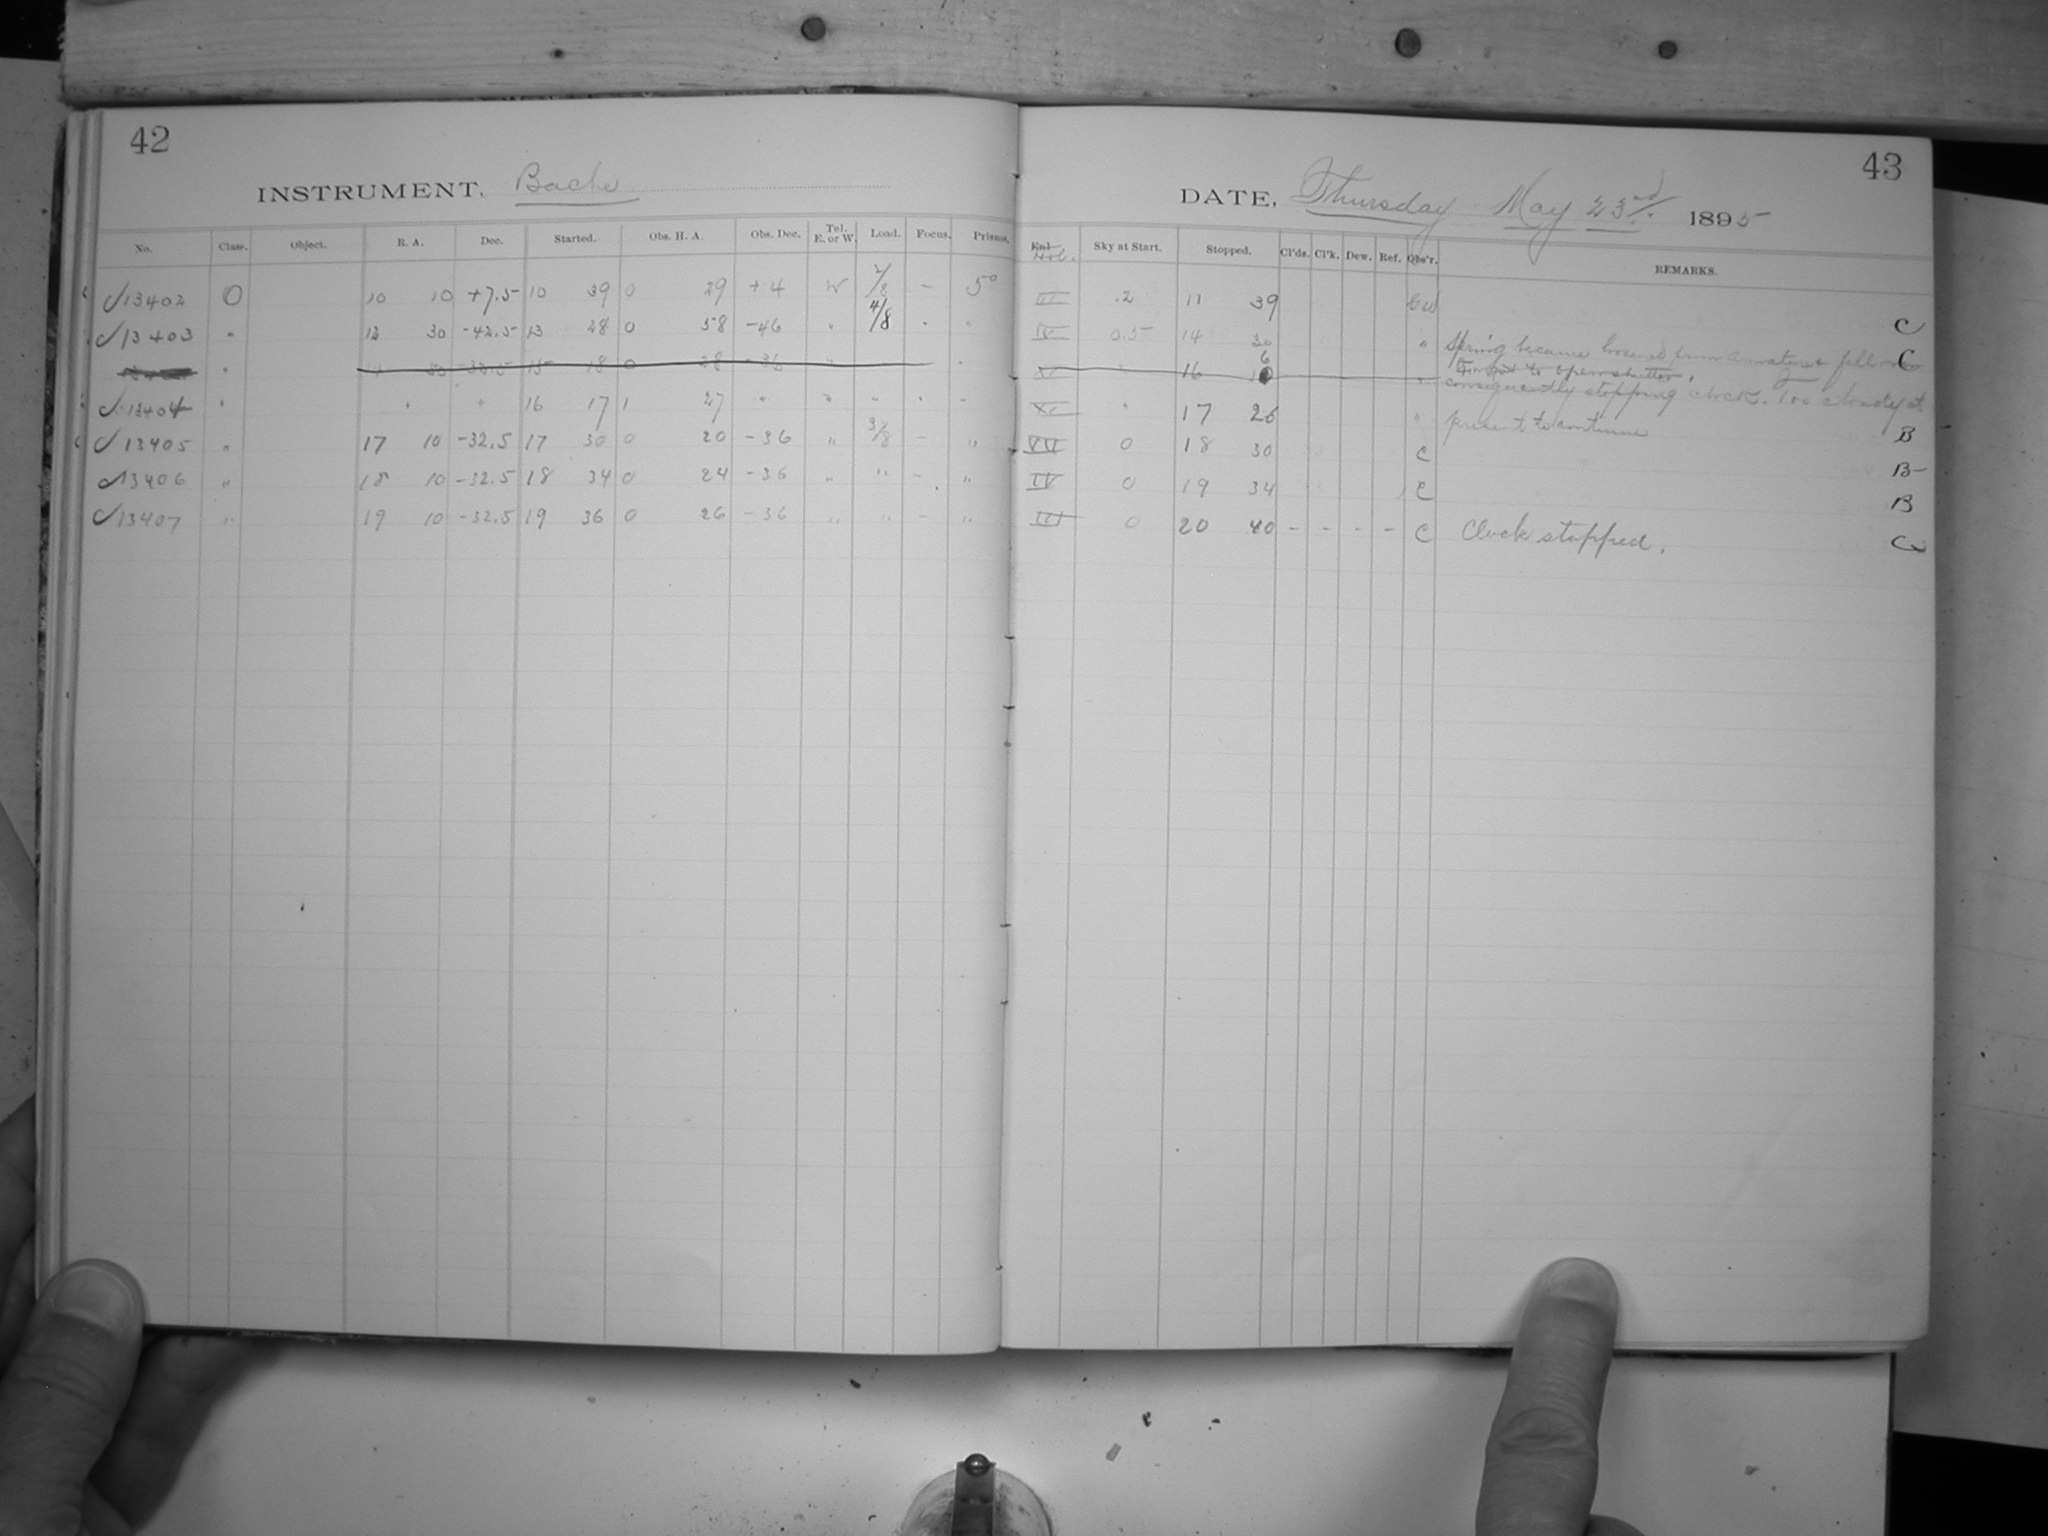 42
INSTRUMENT. Bache
No. Class. Object. R. A. Dec. Started. Obs. H. A. Obs. Dec. Tel. E. or W. Load. Focus. Prisms.
✓13402 O 10 10 +7.5 10 39 0 29 +4 W 2/8 - 5°
✓13403 " 12 30 -42.5 13 28 0 58 -46 " 4/8 " "
" 15 18 0 28 -36 " "
✓13404 " " " 16 17 1 27 " " " " "
✓13405 " 17 10 -32.5 17 30 0 20 -36 " 3/8 - "
✓13406 " 18 10 -32.5 18 34 0 24 -36 " " - "
✓13407 " 19 10 -32.5 19 36 0 26 -36 " " - "
43
DATE, Thursday May 23rd/. 1895
Sky at Start. Stopped. Cl'ds. Cl'k. Dew. Ref. Obs'r. REMARKS.
III .2 11 39 C
IV 0.5 14 30 " Spring became loosened from armature fell C
XI " 16 " Forgot to open shutter.
consequently stopping clock. Too cloudy at
XI " 17 26 " present to continue B
VII 0 18 30 C B
IV 0 19 34 C B
III 0 20 40 - - - - C Clock stopped. C